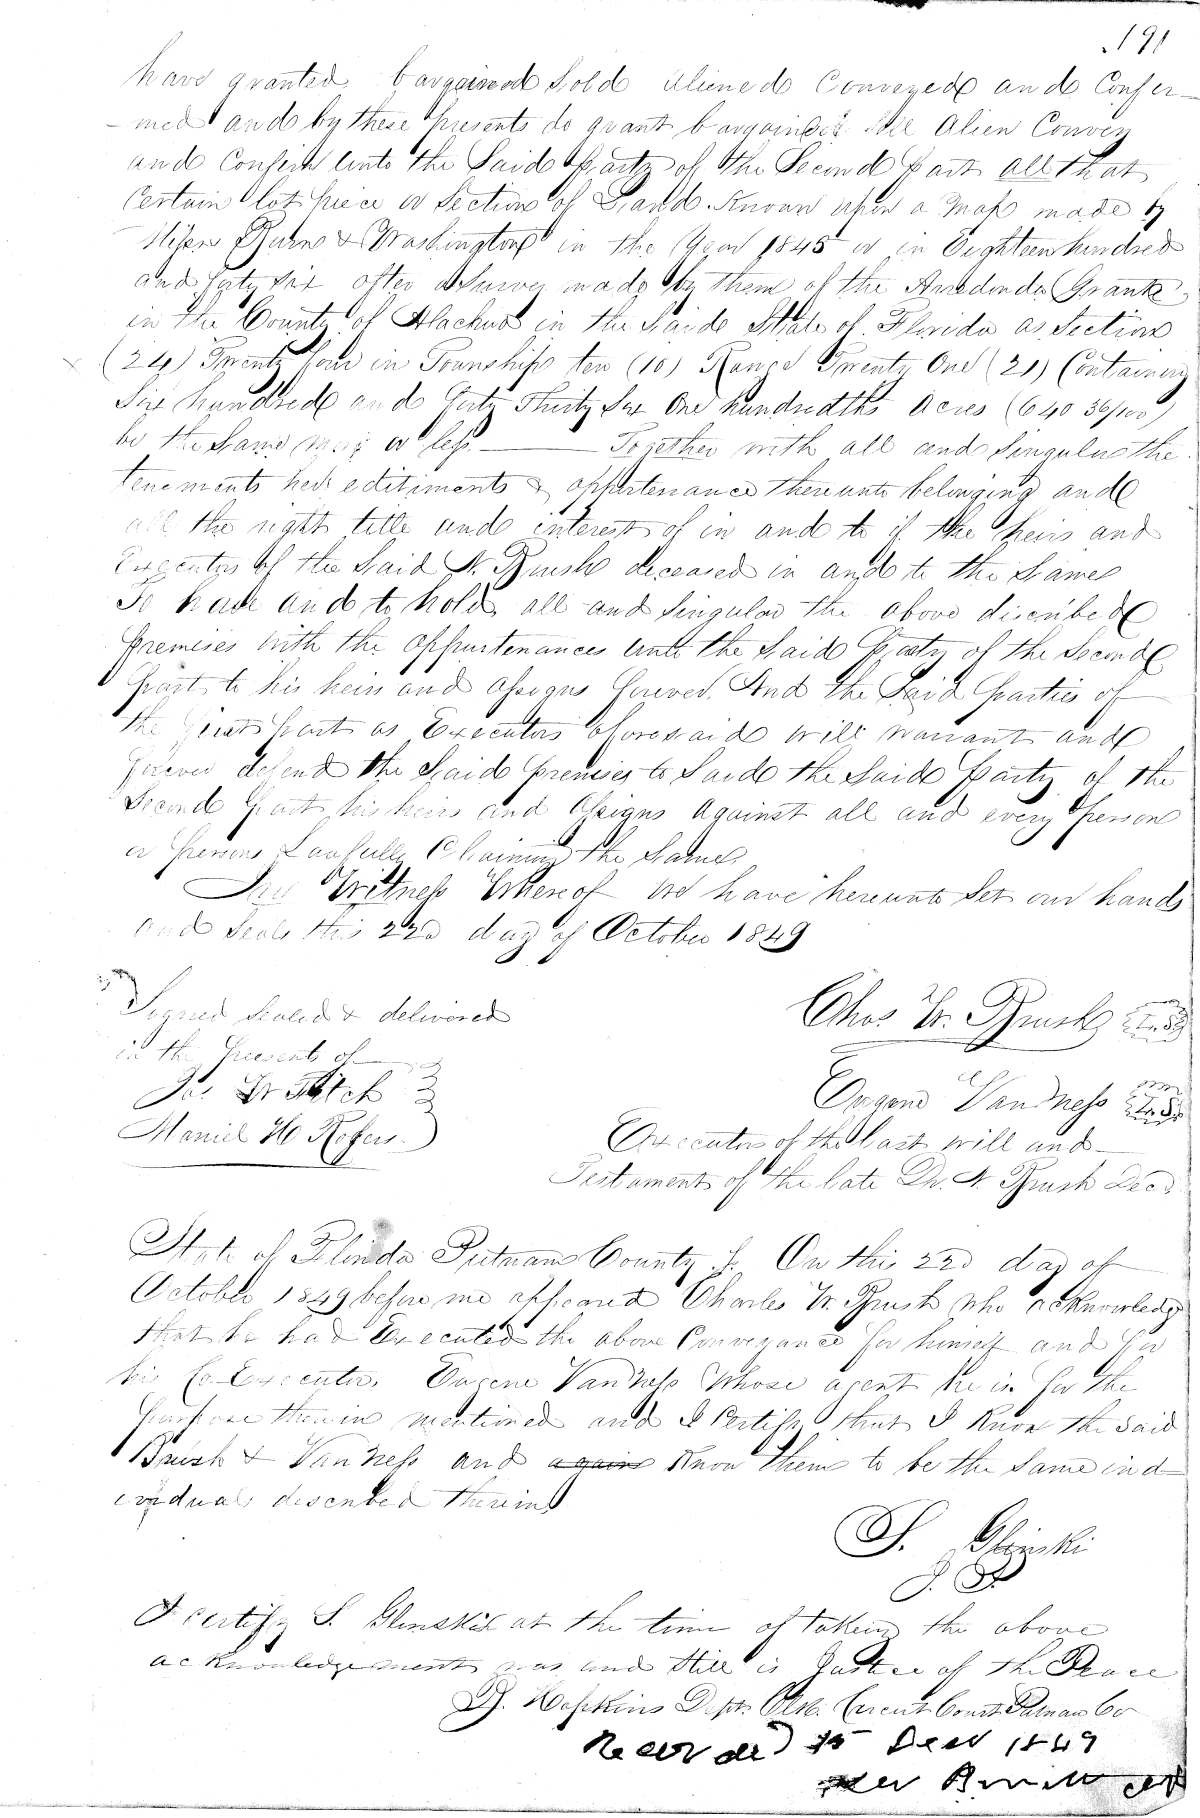 191
have granted bargained Sold Aliened Conveyed and Confer-
-med and by these presents do grant bargain Sell Alien Convey
and Confirm unto the Said party of the Second part all that
Certain lot piece or Section of Land Known upon a Map made by
Burns & Washington in the Year 1845 or in Eighteen hundred
and forty six after a Survey made by them of the Arredondo Grant
in the County of Alachua in the Said State of Florida as Section
(24) Twenty four in Township ten (10) Range Twenty One (21) Containing
Six hundred and forty Thirty Six One hundredths Acres (640 36/100)
be the Same more or less Together with all and Singular the
tenements hereditiments & appurtenance thereunto belonging and
all the right title and interest of in and to if the heirs and
Executors of the Said N. Brush deceased in and to the Same
To have and to hold all and Singular the above discribed
premises with the appurtenances unto the Said Party of the Second
part to his heirs and assigns forever. And the Said parties of
the first part as Executors aforesaid will warrant and
forever defend the Said premises to Said the Said Party of the
Second part his heirs and Assigns Against all and every person
or persons Lawfully Claiming the Same.
In Witness Whereof We have hereunto Set our hands
and Seals this 22d day of October 1849
Signed Sealed & delivered
in the presents of
Jas W Fitch
H Rogers
Chas W. Brush L.S.
Eugene Vandness L.S.
Executors of the last will and
Testament of the late Dr. N Brush Decd.
State of Florida Putnam County On this 22d day of
October 1849 before me appeared Charles W. Brush who acknowledge
that he had Executed the above Conveyance for himself and for
his Co-Executor, Eugene VanNess Whose agent he is for the
purpose therein mentioned and I Certify that I Know the Said
Brush & VanNess and again Know them to be the Same ind-
ividuals described therein
S. Glinski
J. P.
I certify S. Glinski at the time of taking the above
acknowledgement was and Still is Justice of the Peace
Hopkins Dept. Clk. Circuit Court Putnam Co
Recorded 15 Decr 1849